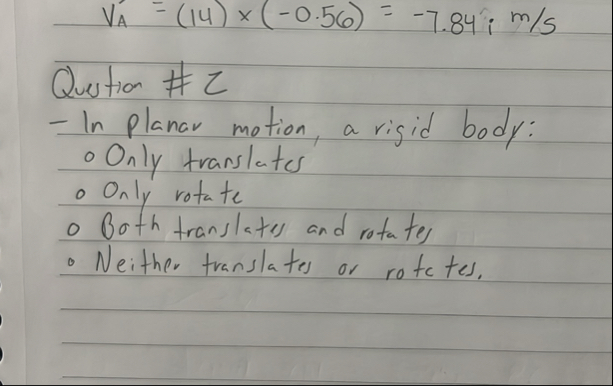 V_A = (14) × (-0.56) = -7.84 i m/s
Question # 2
- In planar motion, a rigid body:
o Only translates
o Only rotate
o Both translates and rotates
o Neither translates or rotates.